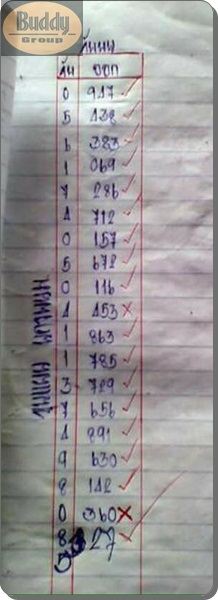 Buddy
Group
ออก
0 947 ✓
5 438 ✓
6 383 ✓
1 069 ✓
7 286 ✓
4 712 ✓
0 157 ✓
5 672 ✓
0 116 ✓
4 453 ✗
1 863 ✓
1 785 ✓
3 729 ✓
7 656 ✓
4 891 ✓
9 630 ✓
8 142 ✓
0 360 ✗
27 ✓